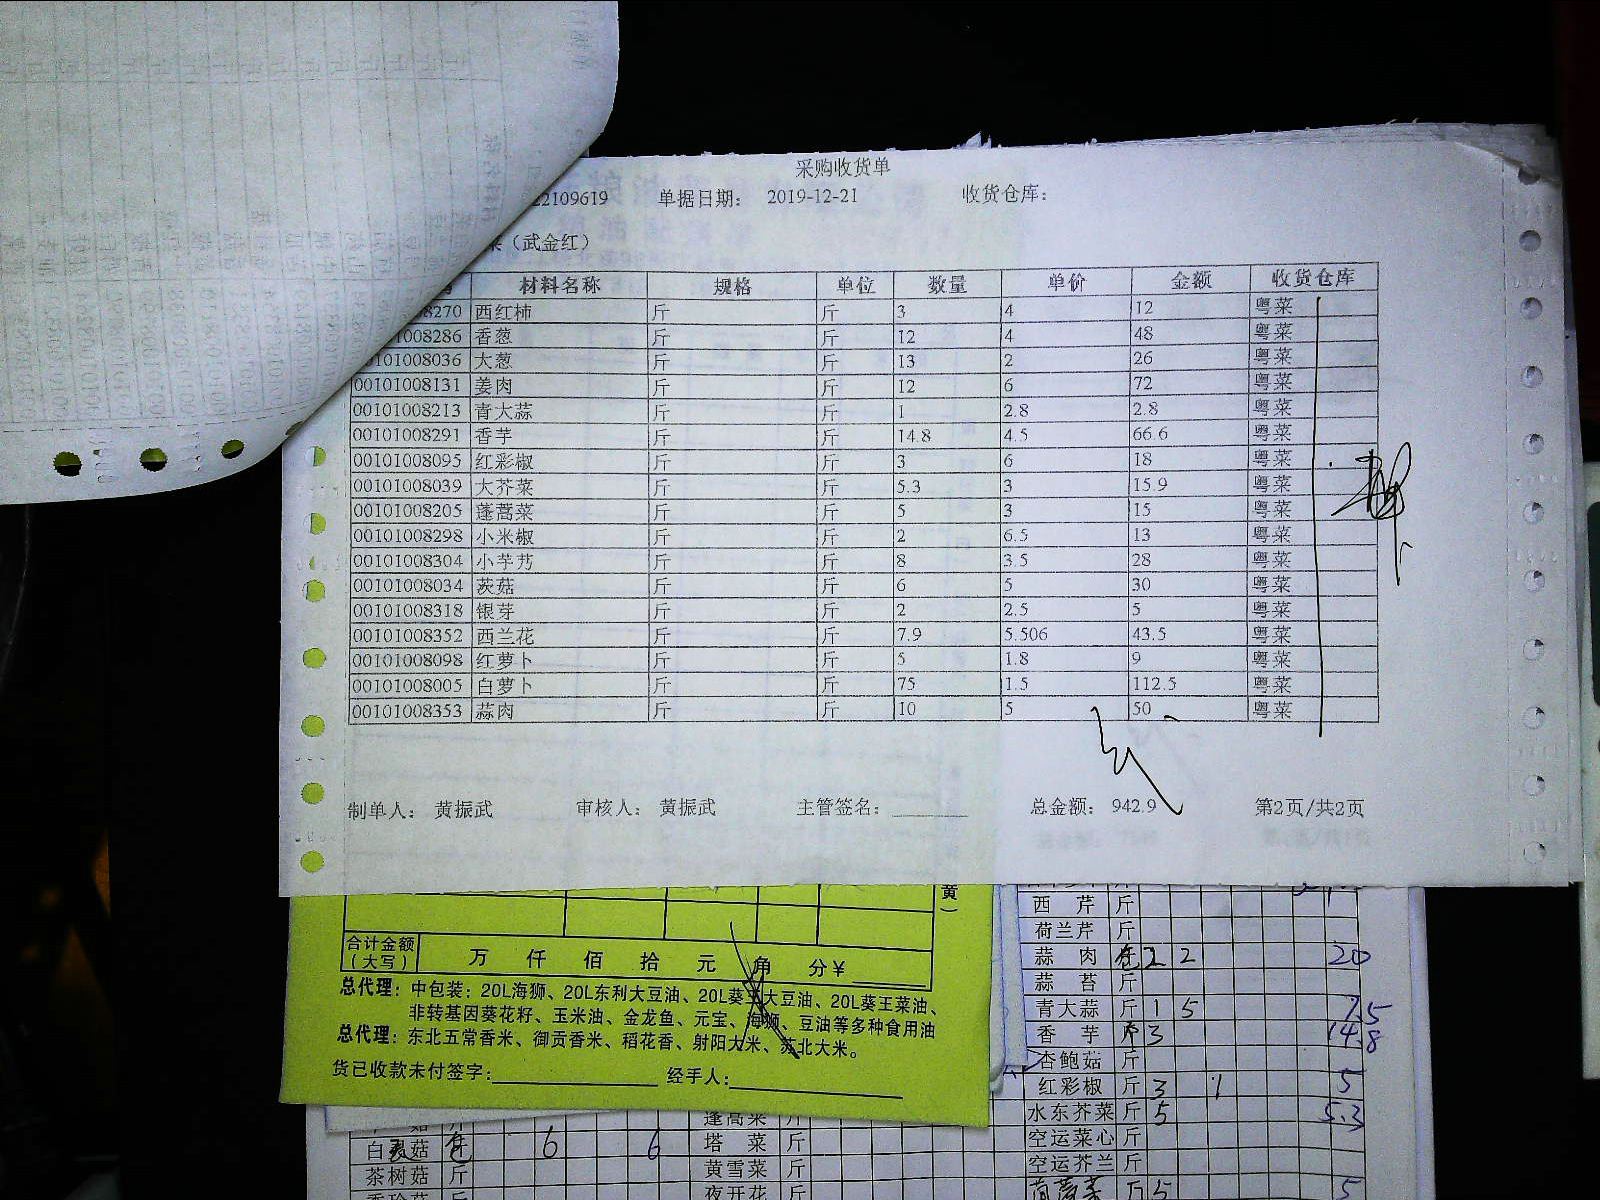 采购收货单
22109619 单据日期： 2019-12-21 收货仓库：
菜（武金红）
材料名称 规格 单位 数量 单价 金额 收货仓库
8270 西红柿 斤 斤 3 4 12 粤菜
01008286 香葱 斤 斤 12 4 48 粤菜
0101008036 大葱 斤 斤 13 2 26 粤菜
00101008131 姜肉 斤 斤 12 6 72 粤菜
00101008213 青大蒜 斤 斤 1 2.8 2.8 粤菜
00101008291 香芋 斤 斤 14.8 4.5 66.6 粤菜
00101008095 红彩椒 斤 斤 3 6 18 粤菜
00101008039 大芥菜 斤 斤 5.3 3 15.9 粤菜
00101008205 蓬蒿菜 斤 斤 5 3 15 粤菜
00101008298 小米椒 斤 斤 2 6.5 13 粤菜
00101008304 小芋艿 斤 斤 8 3.5 28 粤菜
00101008034 茨菇 斤 斤 6 5 30 粤菜
00101008318 银芽 斤 斤 2 2.5 5 粤菜
00101008352 西兰花 斤 斤 7.9 5.506 43.5 粤菜
00101008098 红萝卜 斤 斤 5 1.8 9 粤菜
00101008005 白萝卜 斤 斤 75 1.5 112.5 粤菜
00101008353 蒜肉 斤 斤 10 5 50 粤菜
制单人： 黄振武 审核人： 黄振武 主管签名： 总金额： 942.9 第2页/共2页
黄）
合计金额（大写） 万 仟 佰 拾 元 角 分¥
总代理：中包装：20L海狮、20L东利大豆油、20L葵王大豆油、20L葵王菜油、
非转基因葵花籽、玉米油、金龙鱼、元宝、海狮、豆油等多种食用油
总代理：东北五常香米、御贡香米、稻花香、射阳大米、苏北大米。
货已收款未付签字： 经手人：
西芹 斤
荷兰芹 斤
蒜肉 2 20
蒜苔 斤
青大蒜 斤 1 5 7.5
香芋 斤 3 14.8
杏鲍菇 斤
红彩椒 斤 3 1 5
水东芥菜 斤 5 5.3
空运菜心 斤
空运芥兰 斤
5 5
蓬蒿菜 斤
塔菜 斤
黄雪菜 斤
夜开花 斤
菇 斤
白灵菇 6 6
茶树菇 斤